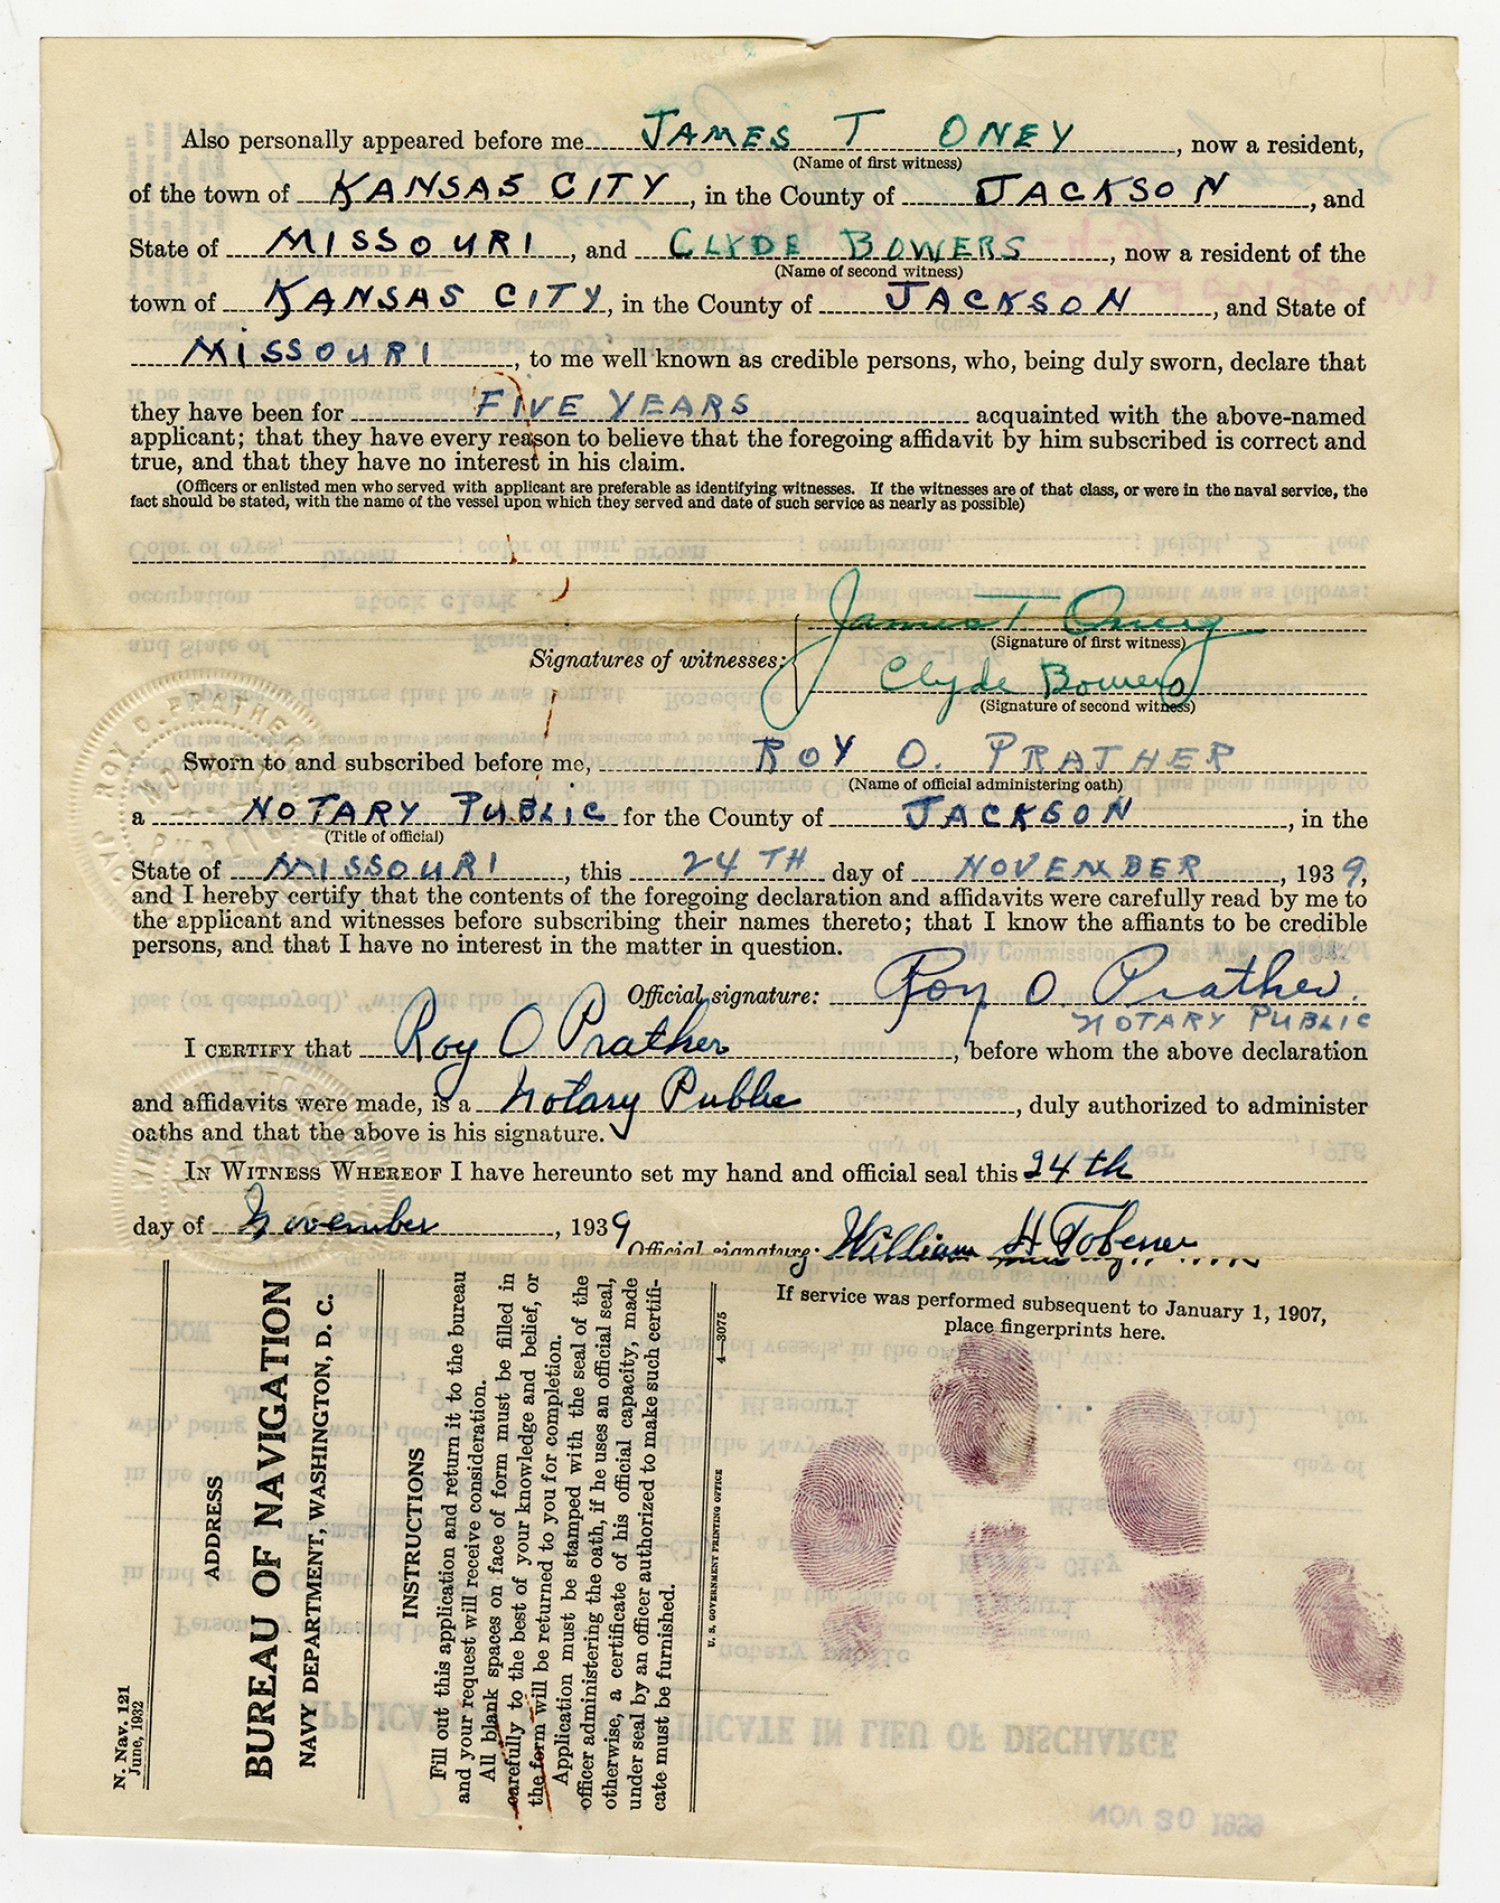 Also personally appeared before me JAMES T ONEY, now a resident,
(Name of first witness)
of the town of KANSAS CITY, in the County of JACKSON, and
State of MISSOURI, and CLYDE BOWERS, now a resident of the
(Name of second witness)
town of KANSAS CITY, in the County of JACKSON, and State of
MISSOURI, to me well known as credible persons, who, being duly sworn, declare that
they have been for FIVE YEARS acquainted with the above-named
applicant; that they have every reason to believe that the foregoing affidavit by him subscribed is correct and
true, and that they have no interest in his claim.
(Officers or enlisted men who served with applicant are preferable as identifying witnesses. If the witnesses are of that class, or were in the naval service, the
fact should be stated, with the name of the vessel upon which they served and date of such service as nearly as possible)
James T. Oney
(Signature of first witness)
Signatures of witnesses:
Clyde Bowers
(Signature of second witness)
Sworn to and subscribed before me, ROY O. PRATHER
(Name of official administering oath)
a NOTARY PUBLIC for the County of JACKSON, in the
(Title of official)
State of MISSOURI, this 24TH day of NOVEMBER, 1939,
and I hereby certify that the contents of the foregoing declaration and affidavits were carefully read by me to
the applicant and witnesses before subscribing their names thereto; that I know the affiants to be credible
persons, and that I have no interest in the matter in question.
Official signature: Roy O. Prather.
NOTARY PUBLIC
I CERTIFY that Roy O Prather, before whom the above declaration
and affidavits were made, is a Notary Public, duly authorized to administer
oaths and that the above is his signature.
IN WITNESS WHEREOF I have hereunto set my hand and official seal this 24th
day of November, 1939
Official signature: William H Tobener
If service was performed subsequent to January 1, 1907,
place fingerprints here.
N. Nav. 121
June, 1932
ADDRESS
BUREAU OF NAVIGATION
NAVY DEPARTMENT, WASHINGTON, D. C.
INSTRUCTIONS
Fill out this application and return it to the bureau
and your request will receive consideration.
All blank spaces on face of form must be filled in
carefully to the best of your knowledge and belief, or
the form will be returned to you for completion.
Application must be stamped with the seal of the
officer administering the oath, if he uses an official seal,
otherwise, a certificate of his official capacity, made
under seal by an officer authorized to make such certifi-
cate must be furnished.
U. S. GOVERNMENT PRINTING OFFICE 4—3075
ROY O. PRATHER
NOTARY
PUBLIC